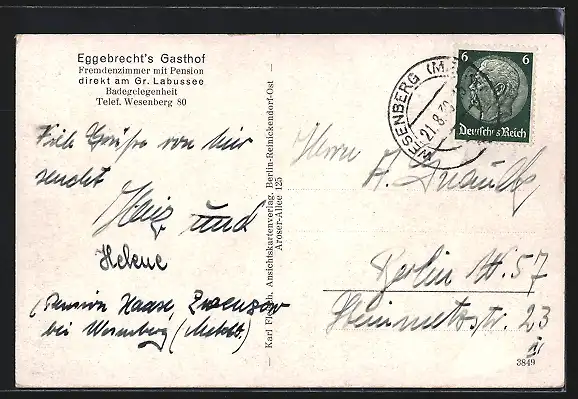 Eggebrecht's Gasthof
Fremdenzimmer mit Pension
direkt am Gr. Labussee
Badegelegenheit
Telef. Wesenberg 80
Viele Grüße von hier
sendet
Heinz und
Helene
(Pension Haase, Zwenzow
bei Wesenberg (Mecklb.)
Karl Ansichtskartenverlag, Berlin-Reinickendorf-Ost
Aroser-Allee 125
WESENBERG (M
21.8.39
6 6
Deutsches Reich
Herrn
A.
Berlin W. 57
Steinmetzstr. 23
III
3849